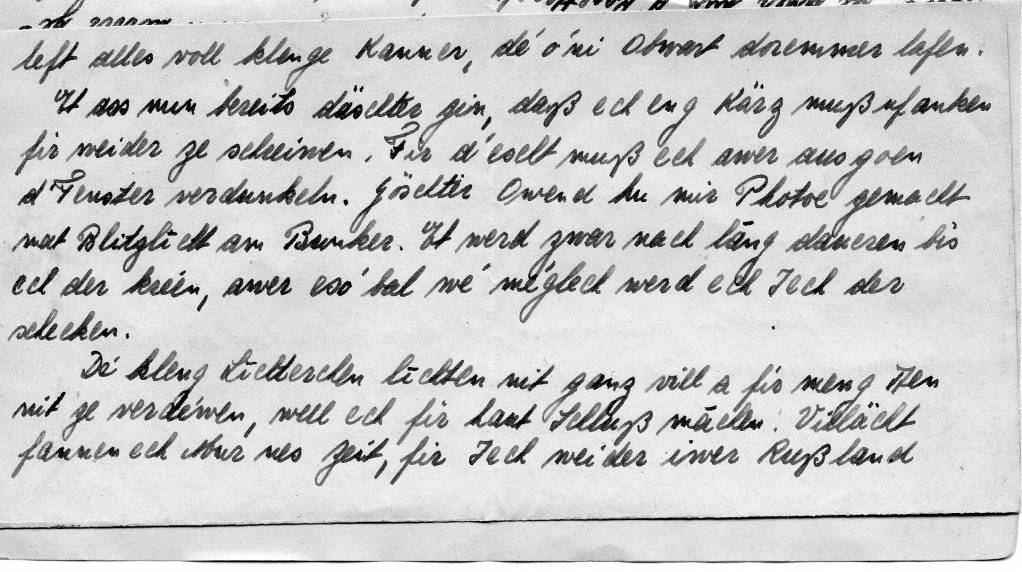 left alles voll klenge Kanner, dé o'ni Obwart doremmer lafen.
Et ass nun bereits däischter gin, daß ech eng Kärz muß ufänken
fir weider ze schreiwen. Fir d'éischt muß ech awer ausgoen
d'Fenster verdunkeln. Göschter Owend hu mir Photoe gemacht
mat Blitzliicht am Bunker. Et werd zwar nach läng daueren bis
ech der kréien, awer esó bal wé méglech werd ech Iech der
schecken.
Dé kleng Liichterchen liichten nit ganz vill a fir meng Aen
nit ze verdérwen, well ech fir haut Schluß mächen. Villäicht
fannen ech Mur nes Zeit, fir Iech weider iwer Rußland